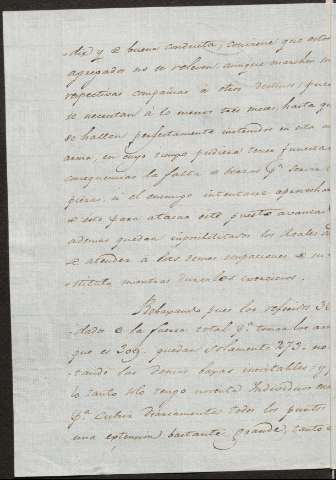 dix y de buena conducta; conviene que estos
agregados no se releven, aunque marchen sus
respectivas compañias à otros destinos, pues
se necesitan à lo menos tres meses, hasta que
se hallen perfectamente instruidos en esta
arma, en cuyo tiempo pudiera tener funestas
consequencias la falta de brazos pª servir
piezas, si el enemigo intentase aprovechar
de esto para atacar este puesto avanzado
ademas quedan imposibilitados los
de atender à las demas ocupaciones de su
instituto mientras duran los exercicios.
Rebaxando pues los referidos 36
dado de la fuerza total qº tienen los
que es 309. quedan solamente 273. no
tando las demas baxas inevitables; y
lo tanto solo tengo noventa Individuos
pª cubrir diariamente todos los puntos
una extension bastante grande, tanto